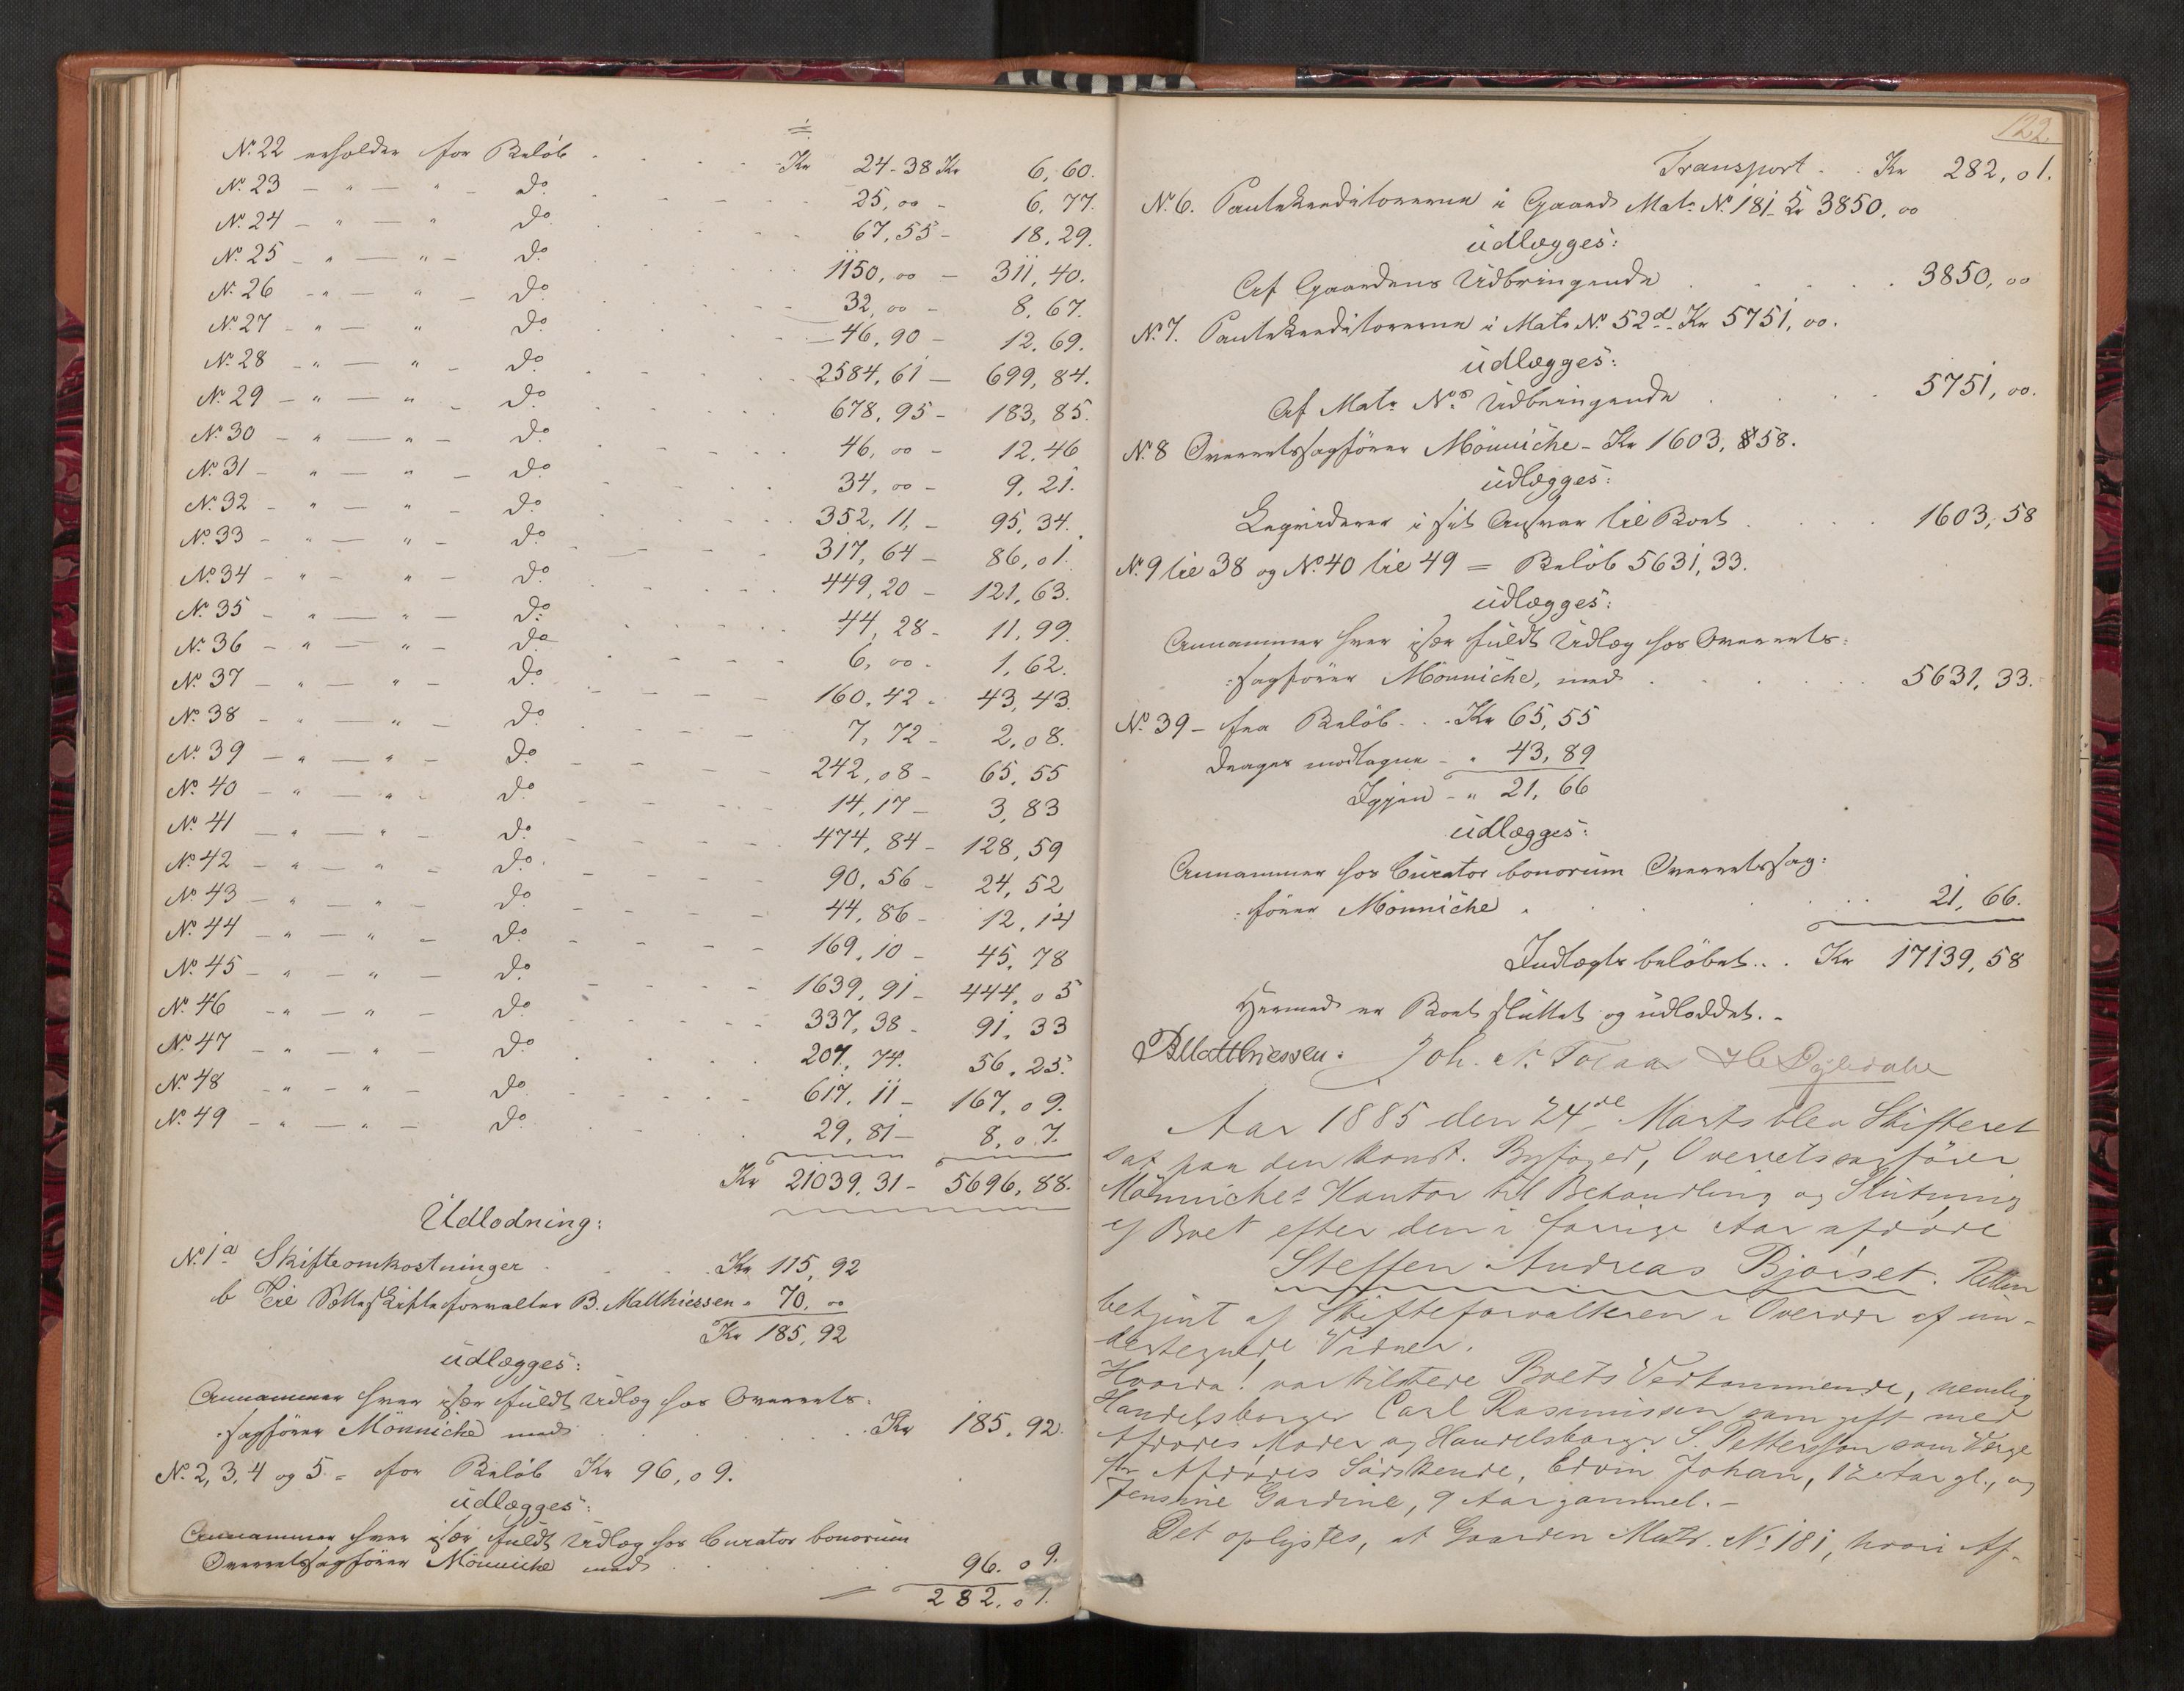 No 22 erholder for Beløb . . . . Kr 24-38 Kr 6,60.
No 23 — " — " — do 25,00 - 6,77.
No 24 — " — " do 67,55 - 18,29.
No 25 — " — " — do 1150,00 — 311,40.
No 26 — " — " — do 32,00 - 8,67.
No 27 — " — " do 46,90 - 12,69.
No 28 — " — " — do 2584,61 — 699,84.
No 29 — " — " — do 678,95 - 183,85.
No 30 — " — " — do 46,00 - 12,46
No 31 — " — " — do 34,00 - 9,21.
No 32 — " — " — do 352,11, - 95,34.
No 33 — " — " — do 317,64 - 86,01.
No 34 — " — " — do 449,20 - 121,63.
No 35 — " — " — do 44,28 - 11,99.
No 36 — " — " — do 6,00 - 1,62.
No 37 — " — " — do 160,42 - 43,43.
No 38 — " — " — do 7,72 - 2,08.
No 39 — " — " — do 242,08 - 65,55
No 40 — " — " — do 14,17 - 3,83
No 41 — " — " — do 474,84 - 128,59
No 42 — " — " — do 90,56 - 24,52
No 43 — " — " — do 44,86 - 12,14
No 44 — " — " — do 169,10 - 45,78
No 45 — " — " — do 1639,91 - 444,05
No 46 — " — " — do 337,38 - 91,33
No 47 — " — " — do 207,74. 56,25.
No 48 — " — " — do 617,11 - 167,09.
No 49 — " — " — do 29,81 - 8,07.
Kr 21039,31 - 5696,88.
Udlodning:
No 1 a Skifteomkostninger . Kr 115,92
b Til Sætteskifteforvalter B. Matthiessen " 70,00
Kr 185,92
udlægges:
Annammer hver især fuldt Udlæg hos Overrets-
sagfører Mönniche med . . . Kr 185,92.
No 2, 3, 4 og 5 = for Beløb Kr 96,09.
udlægges:
Annammer hver især fuldt Udlæg hos Curator bonorum
Overretssagfører Mönniche med . . . 96.09.
282.01.
122.
Transport . . Kr 282,01.
No 6. Pantekreditorerne i Gaard Matr No 181 - Kr 3850,00
udlægges:
Af Gaardens Udbringende . . . 3850,00
No 7. Pantekreditorerne i Matr No 52d - Kr 5751,00.
udlægges:
Af Matr Nos Udbringende . . . 5751,00.
No 8 Overretssagfører Mönniche - Kr 1603,58.
udlægges:
Liqviderer i sit Ansvar til Boet . . . 1603,58
No 9 til 38 og No 40 til 49 = Beløb 5631,33.
udlægges:
Annammer hver især fuldt Udlæg hos Overrets-
sagfører Mönniche, med . . . 5631,33.
No 39 - fra Beløb . . Kr 65,55
drages modtagne - " 43,89
Igjen - " 21,66
udlægges:
Annammer hos Curator bonorum Overretssag-
fører Mönniche . . . 21,66.
Indlægtsbeløbet . . Kr 17139,58
Hermed er Boet sluttet og udloddet. -
B Matthiessen. Joh. N.
Aar 1885 den 24de Marts blev Skifteret
sat paa den konst. Byfoged, Overretssagfører
Mönniches Kontor til Behandling og Slutning
af Boet efter den i forrige Aar afdøde
Steffen Andreas Bjørset. Retten
betjent af Skifteforvalteren i Overvær af un-
dertegnede Vidner.
Hvorda! var tilstede Boets Vedkommende, nemlig
Handelsborger Carl Rasmussen som gift med
Afdødes Moder og Handelsborger S. Pettersson som Værge
for Afdødes Sødskende, Edvin Johan, 12 Aar gl., og
Jensine Gardine, 9 Aar gammel. -
Det oplystes, at Gaarden Matr. No 181, hvori Af-